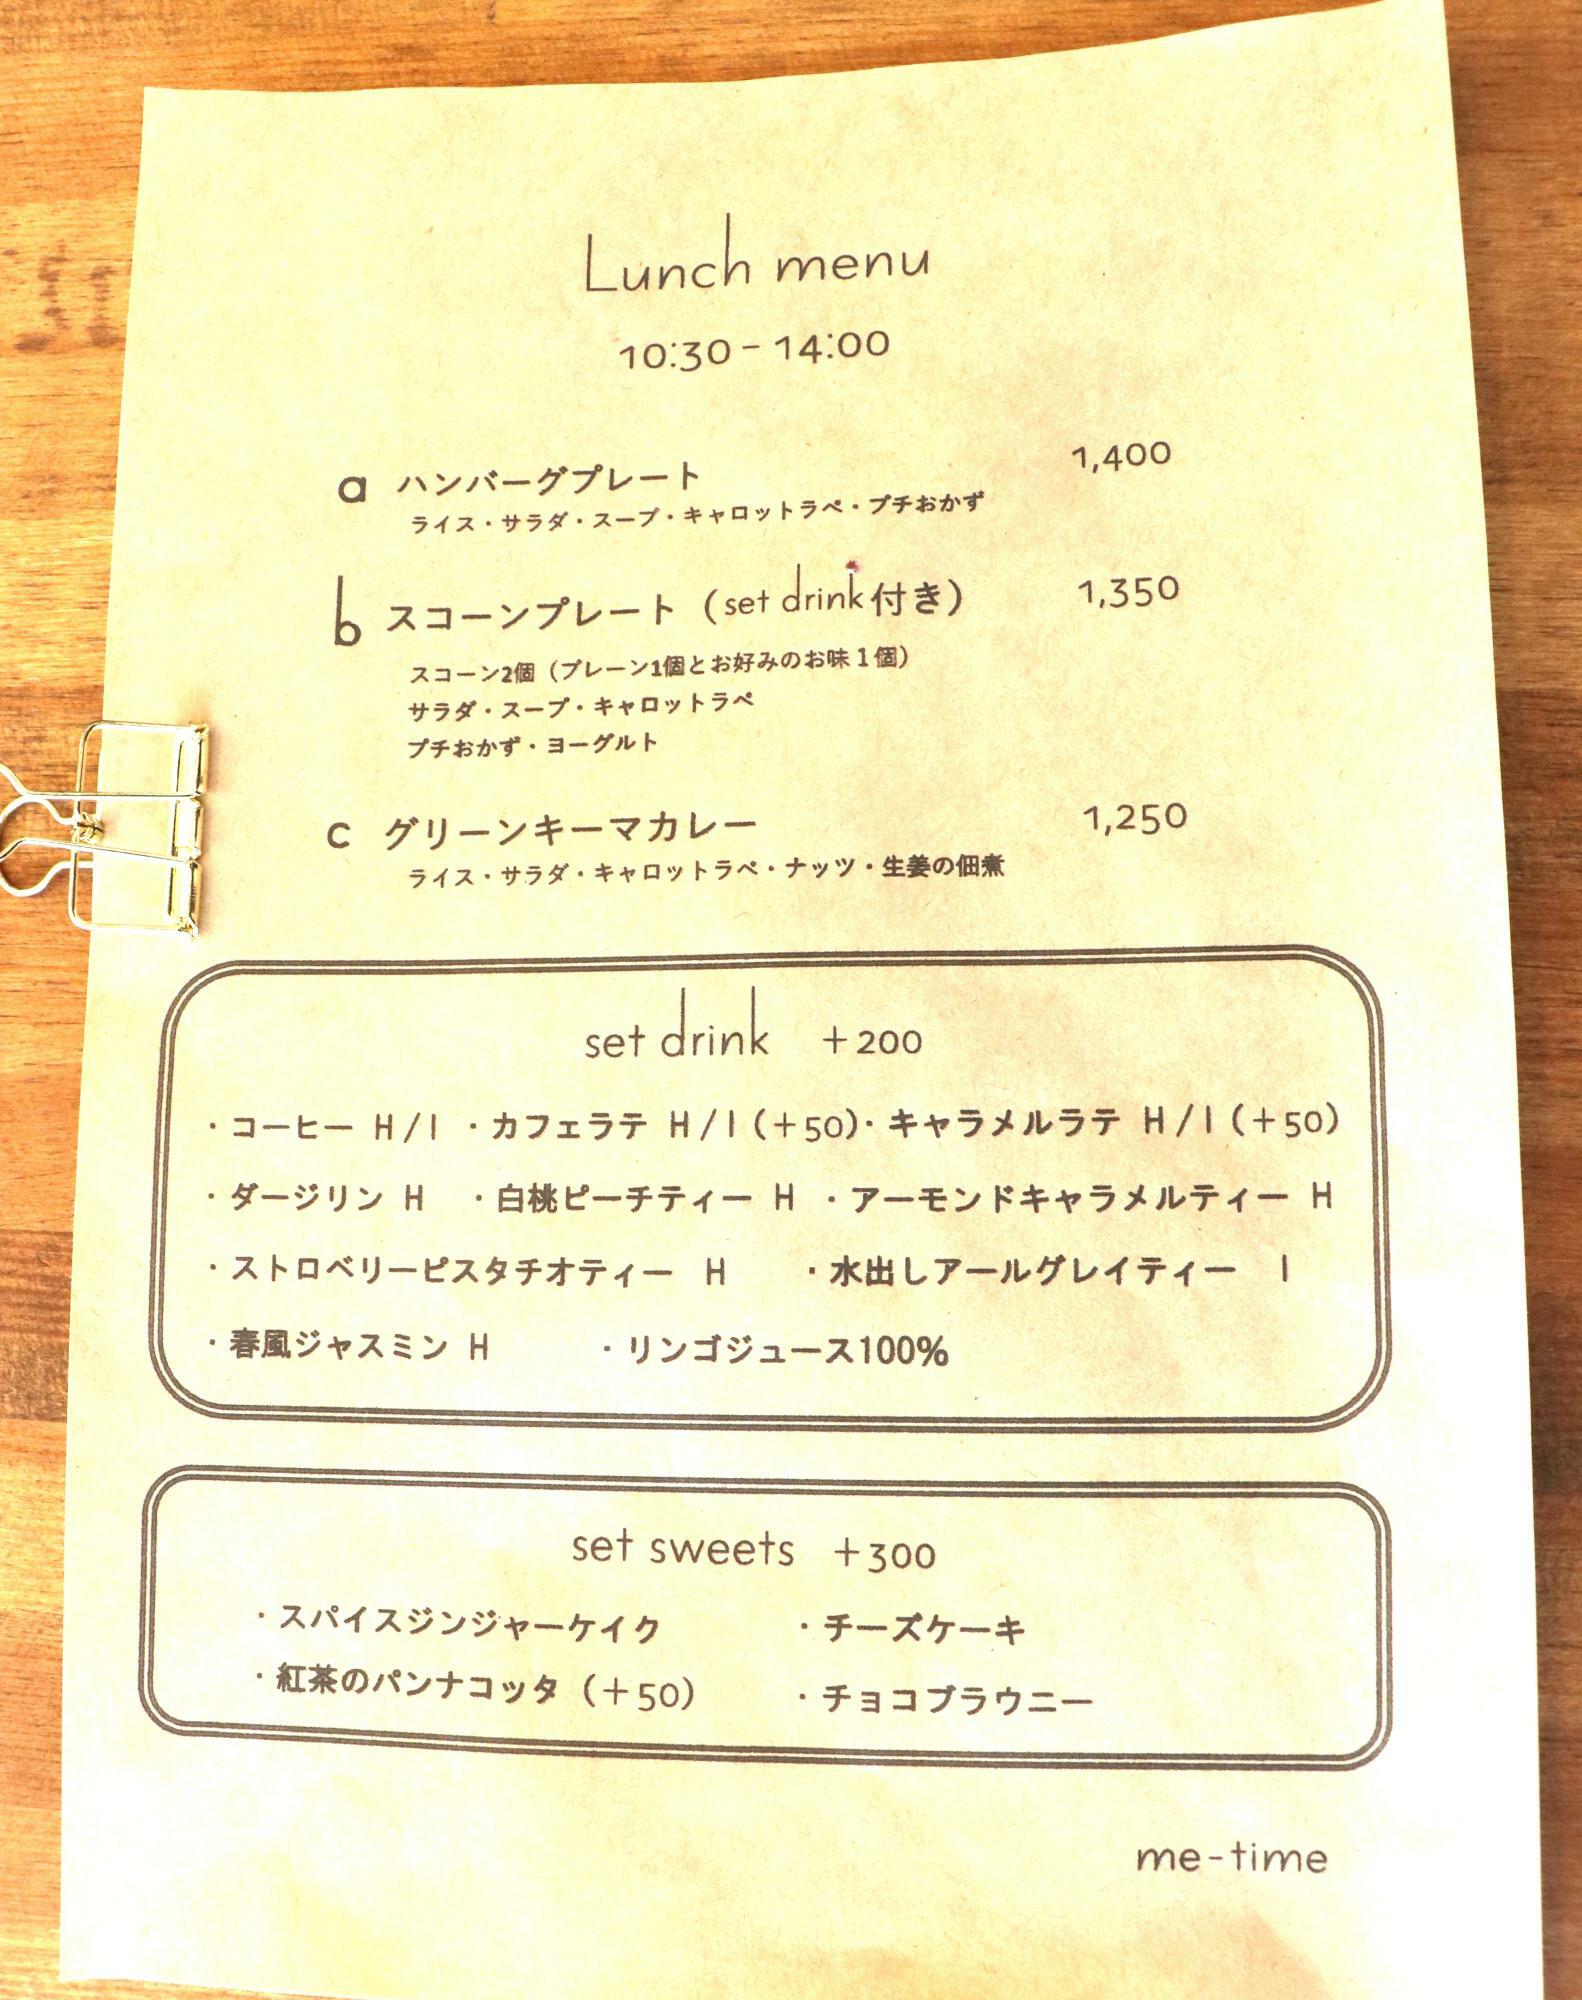 Lunch menu
10:30 - 14:00
a ハンバーグプレート 1,400
ライス・サラダ・スープ・キャロットラペ・プチおかず
b スコーンプレート (set drink付き) 1,350
スコーン2個（プレーン1個とお好みのお味１個）
サラダ・スープ・キャロットラペ
プチおかず・ヨーグルト
c グリーンキーマカレー 1,250
ライス・サラダ・キャロットラペ・ナッツ・生姜の佃煮
set drink +200
・コーヒー H/I ・カフェラテ H/I (+50)・キャラメルラテ H/I (+50)
・ダージリン H ・白桃ピーチティー H ・アーモンドキャラメルティー H
・ストロベリーピスタチオティー H ・水出しアールグレイティー I
・春風ジャスミン H ・リンゴジュース100%
set sweets +300
・スパイスジンジャーケイク ・チーズケーキ
・紅茶のパンナコッタ (+50) ・チョコブラウニー
me-time